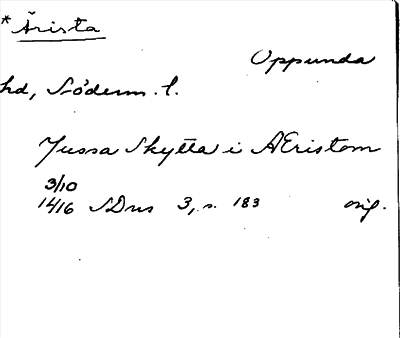 * Ärista
Oppunda
hd, Söderm. l.
Jussa Skytta i AEristom
3/10
1416 SDns 3, s. 183 orig.